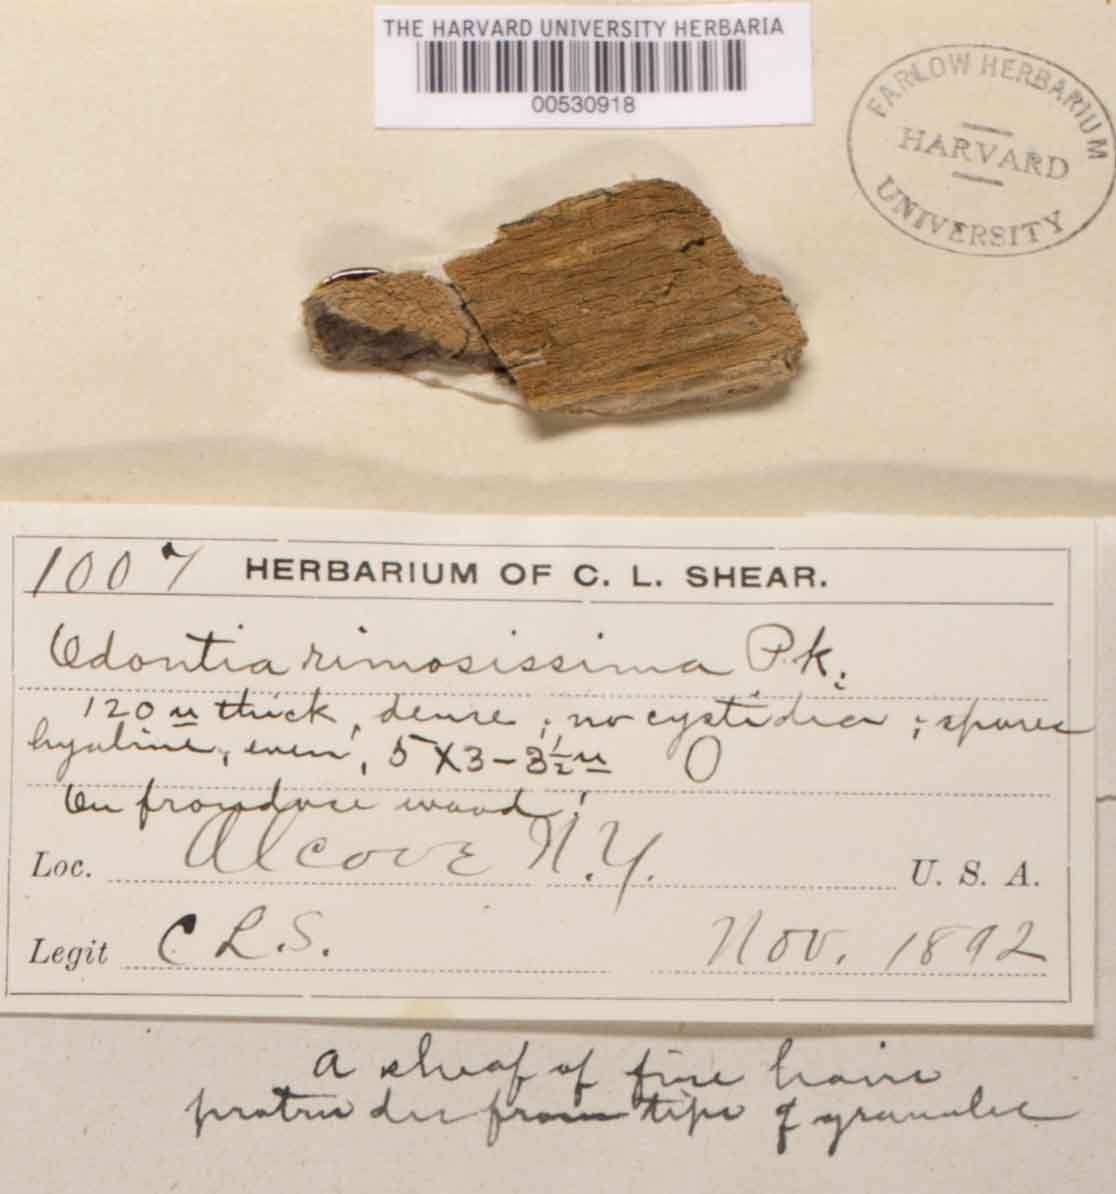 THE HARVARD UNIVERSITY HERBARIA
00530918
FARLOW HERBARIUM
HARVARD
UNIVERSITY
1007 HERBARIUM OF C. L. SHEAR.
Odontia rimosissima Pk.
120 u thick, dense; no cystidia; spores
hyaline, even, 5 X 3 - 3½ u O
On frondose wood
Loc. Alcove N.Y. U. S. A.
Legit C L. S. Nov. 1892
a sheaf of fine hairs
protrudes from tips of granules